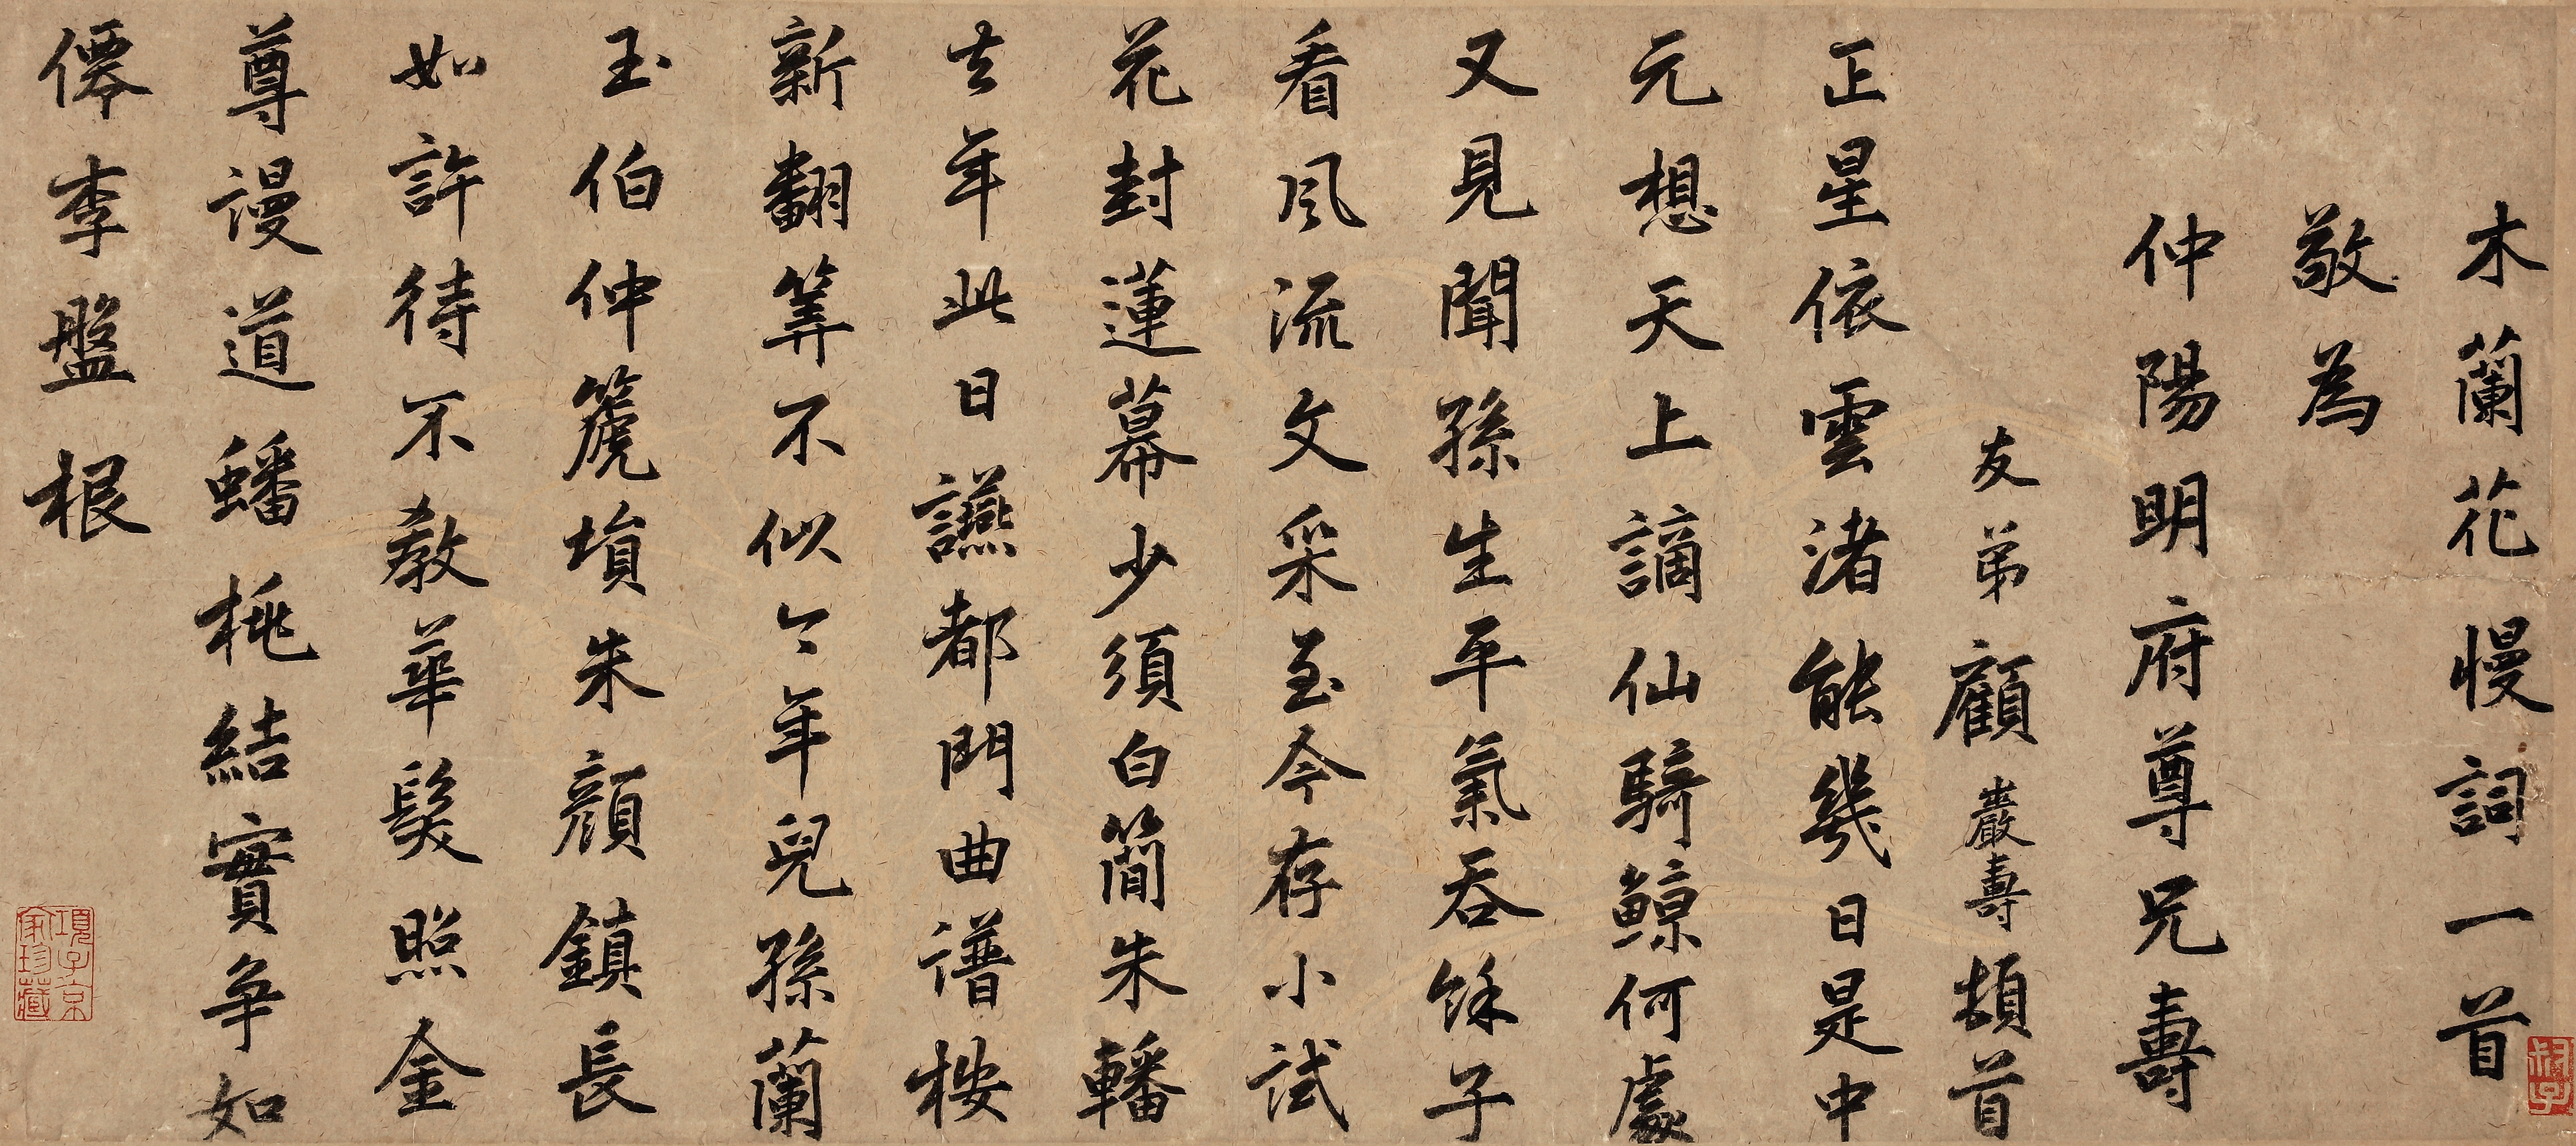 木蘭花慢詞一首
敬為
仲陽明府尊兄壽
友弟顧巖壽頓首
正星依雲渚能幾日是中
元想天上謫仙騎鯨何處
又見聞孫生平氣吞餘子
看風流文采至今存小試
花封蓮幕少須白簡朱轓
去年此日讌都門曲譜桉
新翻筭不似今年兒孫蘭
玉伯仲箎塤朱顔鎮長
如許待不教華髮照金
尊謾道蟠桃結實争如
僊李盤根
項子京
家珍藏